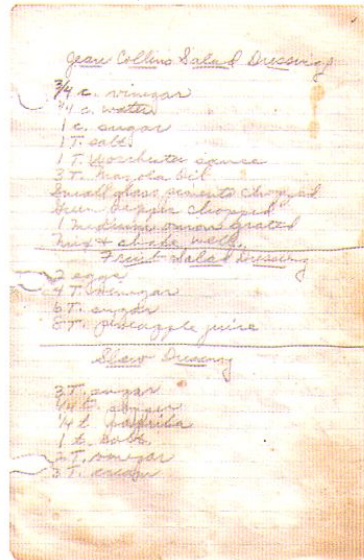 Jeare Collins Salad Dressing
3/4 c. vinegar
1/4 c. water
1 c. sugar
1 T. salt
1 T. Worchester sauce
3 T. Mazola Oil
Small glass pimento chopped
Green Pepper chopped
1 medium onion grated
Mix & shake well.
Fruit Salad Dressing
2 eggs
4 T. vinegar
6 T. sugar
8 T. pineapple juice
Slaw Dressing
3 T. sugar
1/4 t. pepper
1/4 t paprika
1 t. salt
2 T. vinegar
3 T. cream